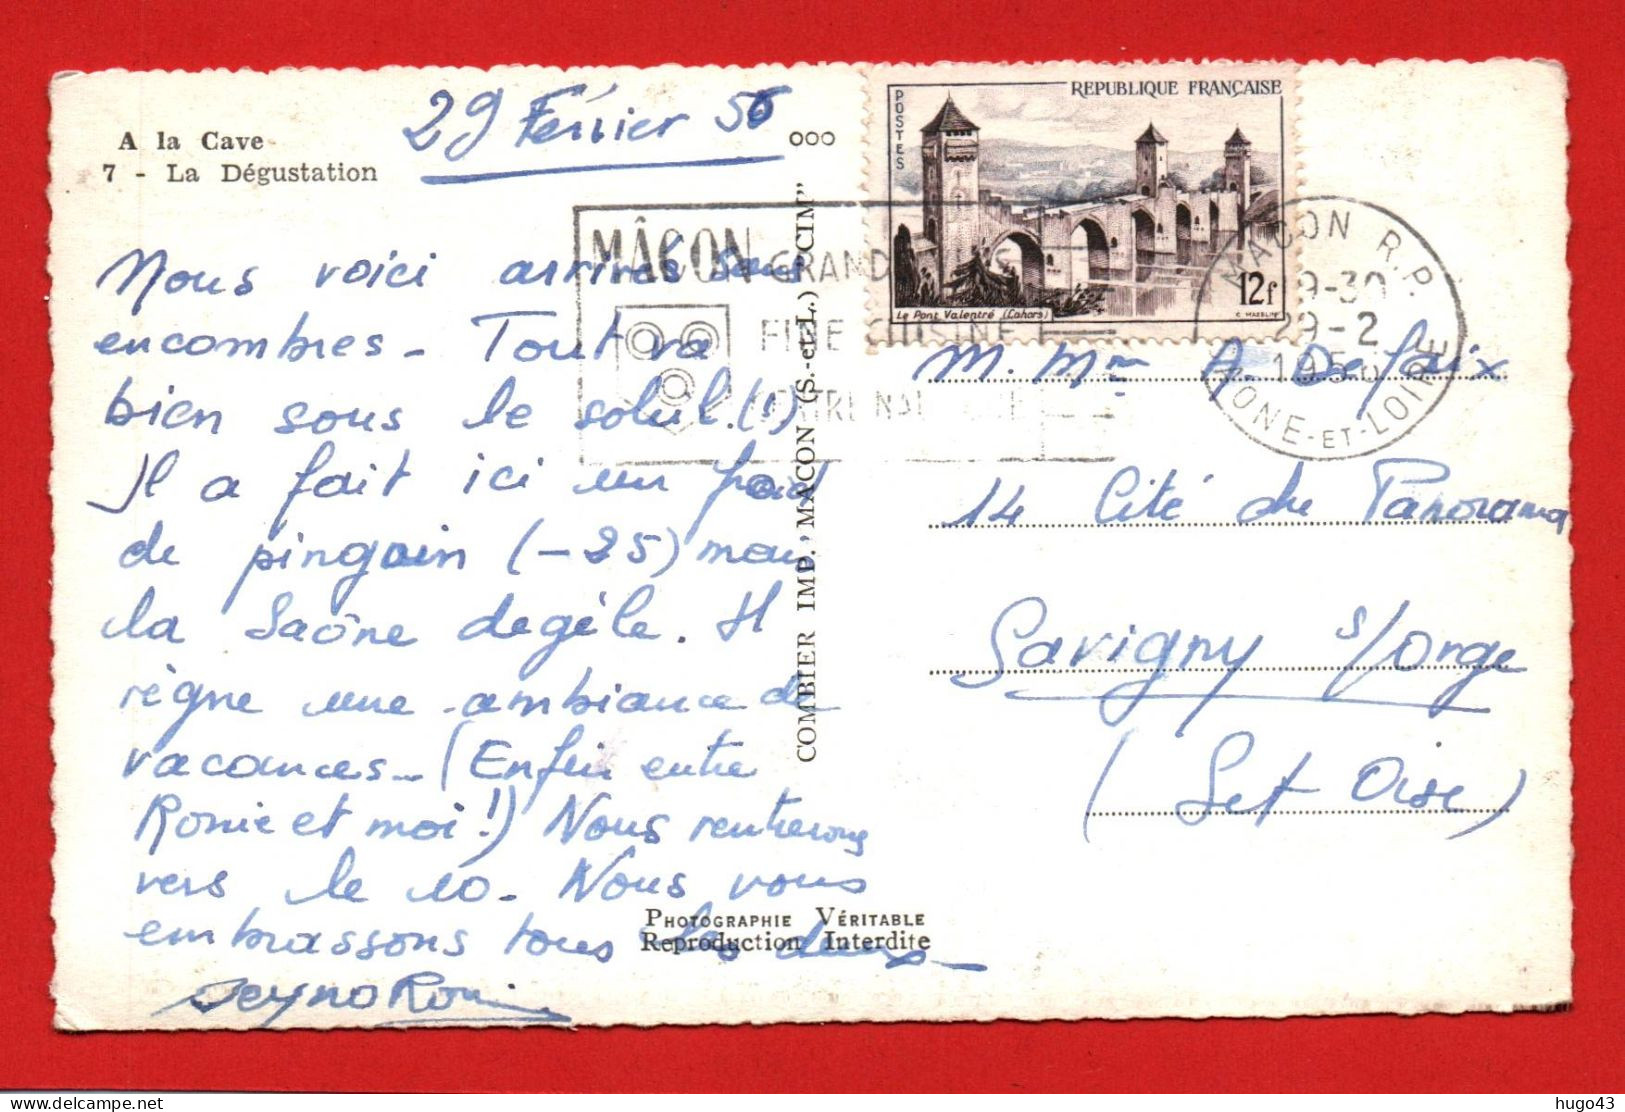 A la Cave
7 - La Dégustation
29 Février 56
ooo
Nous voici arrivés sans
encombres - Tout va
bien sous le soleil. (!)
Il a fait ici un froid
de pingouin (-25) mais
la Saône dégèle. Il
règne une ambiance de
vacances - (Enfin entre
Ronie et moi!) Nous rentrerons
vers le 10. Nous vous
embrassons tous les deux
COMBIER IMP., MACON (S.-et-L.) "CIM"
PHOTOGRAPHIE VÉRITABLE
Reproduction Interdite
POSTES
REPUBLIQUE FRANÇAISE
12f
Le Pont Valentré (Cahors)
MÂCON GRANDS
FINE CUISINE
MACON R.P.
29-2
SAONE-ET-LOIRE
M. Mme A. Defaix
14 Cité du Panorama
Savigny s/Orge
(S et Oise)
hugo43